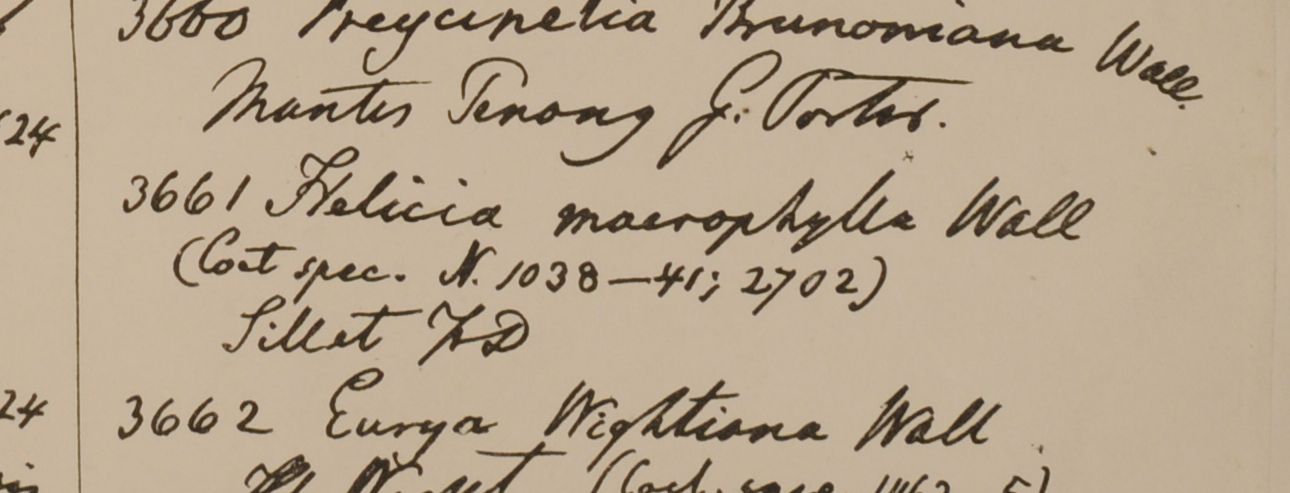 3660 Freycinetia Brunoniana Wall.
24 Montes Penong G. Porter.
3661 Helicia macrophylla Wall
(Coet spec. N. 1038—41; 2702)
Sillet FD
24 3662 Eurya Wightiana Wall
Hb Wight (Coet. spec. 1462